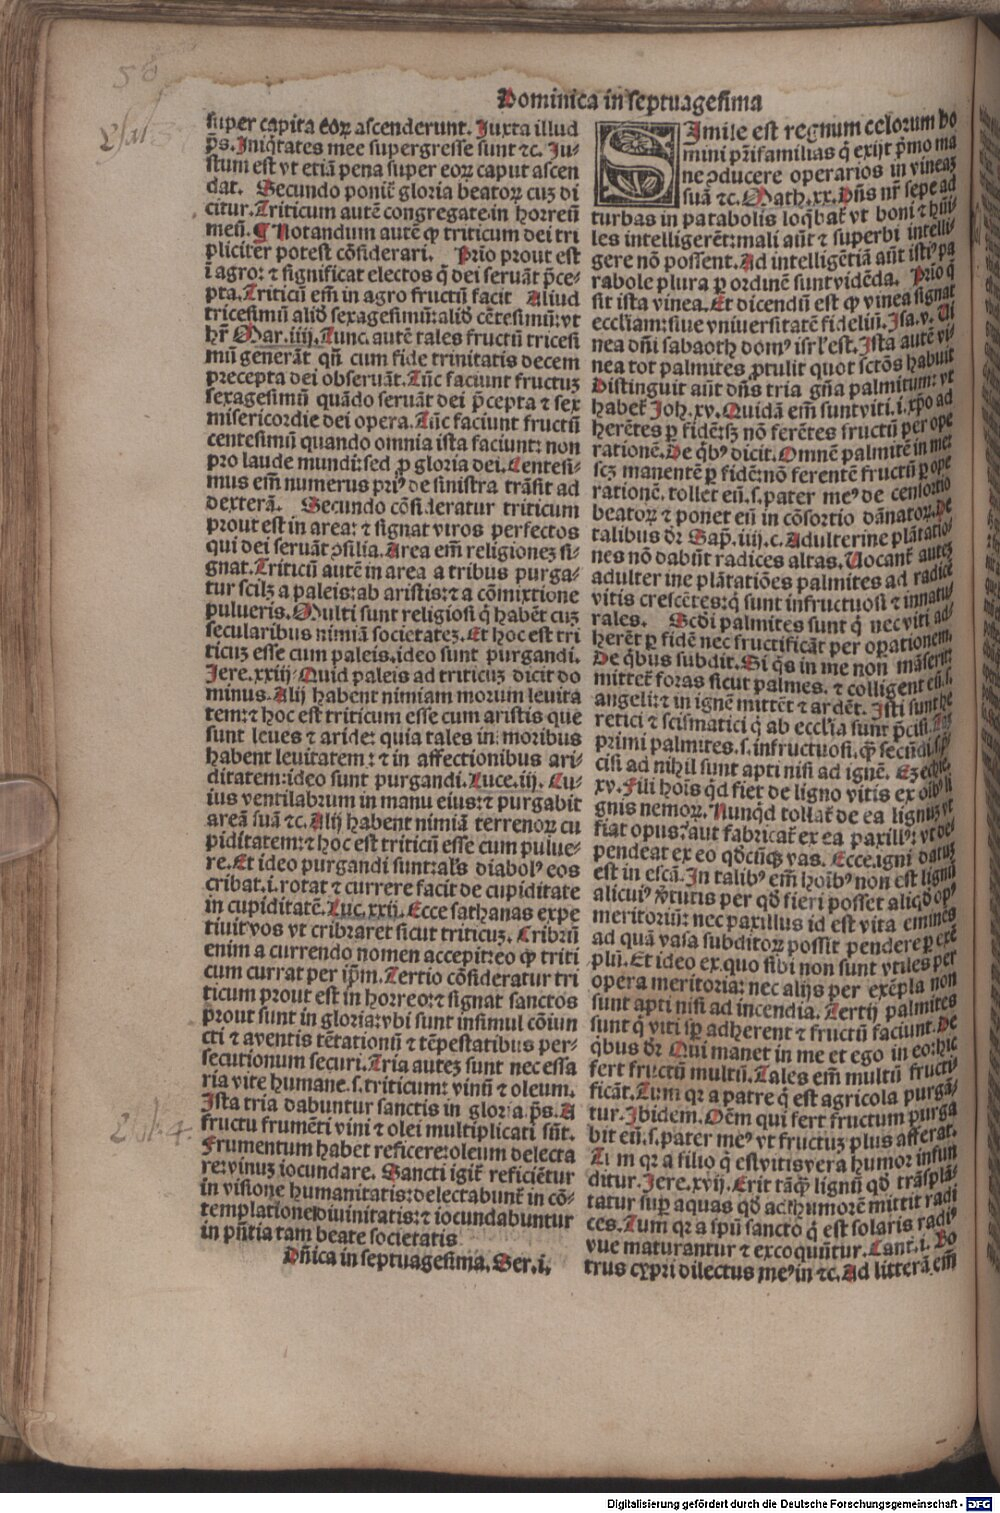 58
Dominica in septuagesima
super capita eoꝝ ascenderunt. Juxta illud
p̄s. Iniq̇tates mee supergresse sunt ⁊c. Ju-
stum est vt etiā pena super eoꝝ caput ascen
dat. Secundo ponit᷑ gloria beatoꝝ cuꝫ di
citur. Triticum autē congregate in horreū
meū. ¶ Notandum autē ꝙ triticum dei tri
pliciter potest cōsiderari. Prīo prout est
ī agro: ⁊ significat electos q̇ dei seruāt p̄ce-
pta. Triticū em̄ in agro fructū facit Aliud
tricesimū aliḋ sexagesimū: aliḋ cētesimū: vt
hr̄ Mar. iiij. Tunc autē tales fructū tricesi
mū generāt qn̄ cum fide trinitatis decem
precepta dei obseruāt. Tūc faciunt fructuꝫ
sexagesimū quādo seruāt dei p̄cepta ⁊ sex
misericordie dei opera. Tūc faciunt fructū
centesimū quando omnia ista faciunt: non
pro laude mundi: sed ꝓ gloria dei. Centesi-
mus em̄ numerus priꝰ de sinistra trāsit ad
dexterā. Secundo cōsideratur triticum
prout est in area: ⁊ signat viros perfectos
qui dei seruāt ꝯsilia. Area em̄ religionez si-
gnat. Triticū autē in area a tribus purga-
tur scilꝫ a paleis: ab aristis: ⁊ a cōmixtione
pulueris. Multi sunt religiosi q̇ habēt cuꝫ
secularibus nimiā societatez. Et hoc est tri
ticuꝫ esse cum paleis. ideo sunt purgandi.
Jere. xxiij Quid paleis ad triticuꝫ dicit do
minus. Alij habent nimiam morum leuita
tem: ⁊ hoc est triticum esse cum aristis que
sunt leues ⁊ aride: quia tales in moribus
habent leuitatem: ⁊ in affectionibus ari-
ditatem: ideo sunt purgandi. Luce. iij. Cu-
ius ventilabrum in manu eius: ⁊ purgabit
areā suā ⁊c. Alij habent nimiā terrenoꝝ cu
piditatem: ⁊ hoc est triticū esse cum pulue-
re. Et ideo purgandi sunt: al's diabolꝰ eos
cribat. i. rotat ⁊ currere facit de cupiditate
in cupiditatē. Luc. xxij. Ecce sathanas expe
tiuit vos vt cribraret sicut triticuꝫ. Cribrū
enim a currendo nomen accepit: eo ꝙ triti
cum currat per ip̄m. Tertio cōsideratur tri
ticum prout est in horreo: ⁊ signat sanctos
prout sunt in gloria: vbi sunt insimul cōiun
cti ⁊ a ventis tētationū ⁊ tēpestatibus per-
secutionum securi. Tria autez sunt necessa
ria vite humane. s. triticum: vinū ⁊ oleum.
Ista tria dabuntur sanctis in gloria p̄s. A
fructu frumēti vini ⁊ olei multiplicati sūt.
Frumentum habet reficere: oleum delecta
re: vinuꝫ iocundare. Sancti igit᷑ reficiētur
in visione humanitatis: delectabunt᷑ in cō-
templatione diuinitatis: ⁊ iocundabuntur
in pn̄tia tam beate societatis
Dn̄ica in septuagesima. Ser. i.
SImile est regnum celorum ho
mini pr̄ifamilias q̇ exijt p̄mo ma
ne ꝯducere operarios in vineaꝫ
suā ⁊c. Math. xx. Dn̄s nr̄ sepe ad
turbas in parabolis loq̇bat᷑ vt boni ⁊ hūi-
les intelligerēt: mali aūt ⁊ superbi intelli-
gere nō possent. Ad intelligētiā aūt istiꝰ pa
rabole plura ꝑ ordinē sunt vidēda. Prīo q̇
sit ista vinea. Et dicendū est ꝙ vinea signat
eccl'iam: siue vniuersitatē fideliū. Isa. v. Vi
nea dn̄i sabaoth domꝰ isrl' est. Ista autē vi-
nea tot palmites ꝓtulit quot sctōs habuit
Distinguit aūt dn̄s tria gn̄a palmitum: vt
habet᷑ Joh. xv. Quidā em̄ sunt viti. i. xp̄o ad
herētes ꝑ fidē: sꝫ nō ferētes fructū per ope
rationē. De q̇bꝰ dicit. Omnē palmitē in me:
scꝫ manentē ꝑ fidē: nō ferentē fructū ꝑ ope
rationē. tollet eū. s. pater meꝰ de censortio
beatoꝝ ⁊ ponet eū in cōsortio dānatoꝝ. De
talibus dr̄ Sap̄. iiij. c. Adulterine plātatio-
nes nō dabūt radices altas. Vocant᷑ autez
adulterine plātatiōes palmites ad radicē
vitis crescētes: q̇ sunt infructuosi ⁊ innatu-
rales. Scḋi palmites sunt q̇ nec viti ad-
herēt ꝑ fidē nec fructificāt per oꝑationem.
De q̇bus subdit. Si q̇s in me non māserit:
mittet᷑ foras sicut palmes. ⁊ colligent eū. s.
angeli: ⁊ in ignē mittēt ⁊ ardēt. Isti sunt he
retici ⁊ scismatici q̇ ab eccl'ia sunt p̄cisi.
primi palmites. s. infructuosi. ꝙ̄ secūdi. s. p̄
cisi ad nihil sunt apti nisi ad ignē. Ezechie.
xv. Fili hoīs qḋ fiet de ligno vitis ex oībꝰ li
gnis nemoꝝ. Nunq̇d tollat᷑ de ea lignuꝫ vt
fiat opus? aut fabricat᷑ ex ea paxillꝰ: vt de-
pendeat ex eo qḋcūqꝫ vas. Ecce. igni datuꝫ
est in escā. In talibꝰ em̄ hoībꝰ non est lignū
alicuiꝰ v̄tutis per qḋ fieri posset aliqḋ opꝰ
meritoriū: nec paxillus id est vita eminēs
ad quā vasa subditoꝝ possit pendere ꝑ exē
plū. Et ideo ex quo sibi non sunt vtiles per
opera meritoria: nec alijs per exēpla non
sunt apti nisi ad incendia. Tertij palmites
sunt q̇ viti sp̄ adherent ⁊ fructū faciunt. De
q̇bus dr̄ Qui manet in me et ego in eo: hic
fert fructū multū. Tales em̄ multū fructi-
ficāt. Tum qr a patre q̇ est agricola purgā-
tur. Ibidem. Oēm qui fert fructum purga
bit eū. s. pater meꝰ vt fructuꝫ plus afferat.
Tum qr a filio q̇ est vitis vera humor infun
ditur. Jere. xvij. Erit tāq̄ȝ lignū qḋ trāsplā-
tatur sup̄ aquas qḋ ad humorē mittit radi
ces. Tum qr a spū sancto q̇ est solaris radiꝰ
vue maturantur ⁊ excoquūtur. Cant. i. Bo
trus cypri dilectus meꝰ in ⁊c. Ad litterā em̄
Digitalisierung gefördert durch die Deutsche Forschungsgemeinschaft - DFG